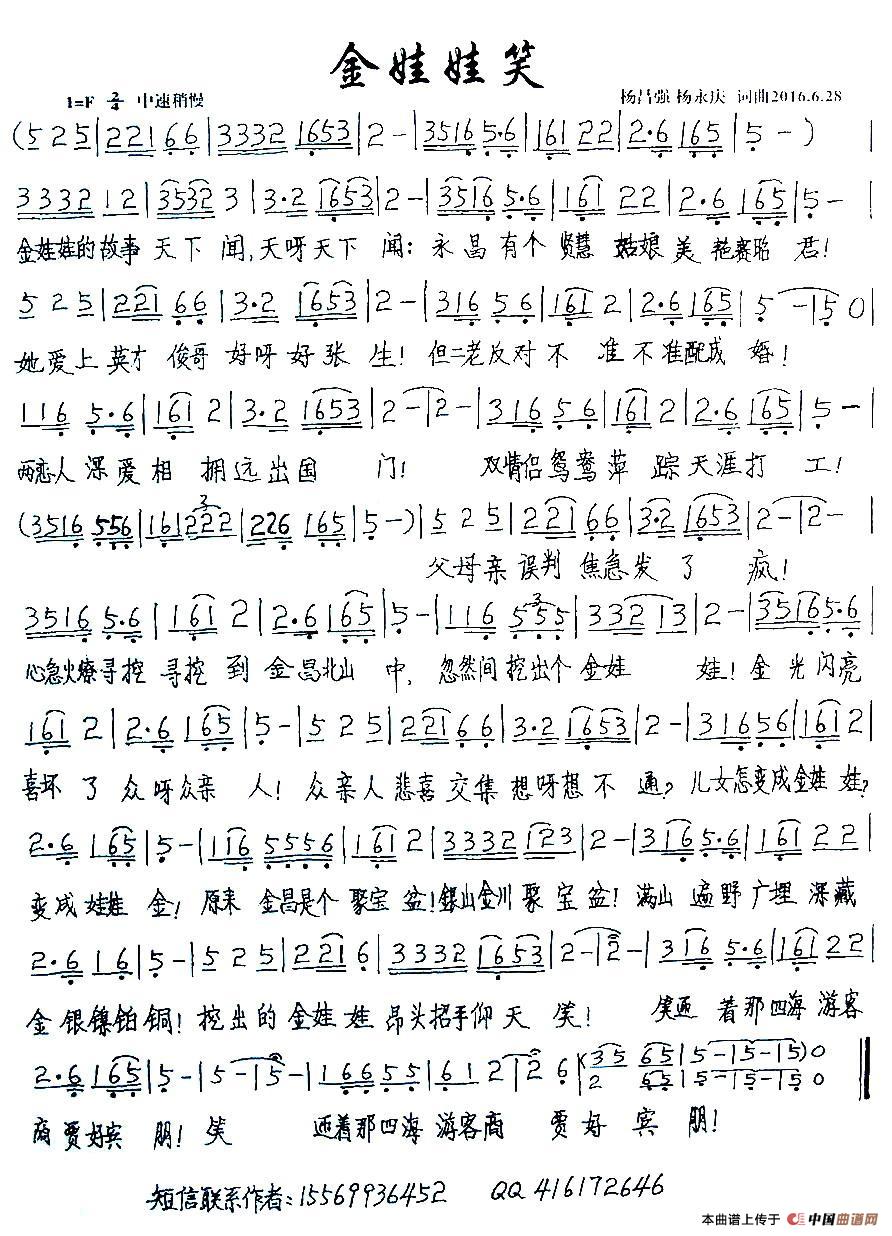 金娃娃笑
1=F 2/4 中速稍慢 杨昌强 杨永庆 词曲2016.6.28
(5 2 5|2 2 1 6 6|3 3 3 2 1 6 5 3|2 -|3 5 1 6 5·6|1 6 1 2 2|2·6 1 6 5|5 -)|
3 3 3 2 1 2|3 5 3 2 3|3·2 1 6 5 3|2 -|3 5 1 6 5·6|1 6 1 2 2|2·6 1 6 5|5 -
金娃娃的故事 天下闻,天呀天下 闻: 永昌有个 贤慧 姑娘美 艳赛昭 君!
5 2 5|2 2 1 6 6|3·2 1 6 5 3|2 -|3 1 6 5 6|1 6 1 2|2·6 1 6 5|5 -|5 0
她爱上英才 俊哥 好呀好张 生! 但二老反对不 准不准配成 婚!
1 1 6 5·6|1 6 1 2|3·2 1 6 5 3|2 -|2 -|3 1 6 5 6|1 6 1 2|2·6 1 6 5|5 -
两恋人深爱相 拥远出国 门! 双情侣鸳鸯萍 踪天涯打 工!
(3 5 1 6 5 5 6|1 6 1 2 2 2|2 2 6 1 6 5|5 -)|5 2 5|2 2 1 6 6|3·2 1 6 5 3|2 -|2 -
父母亲误判 焦急发了 疯!
3 5 1 6 5·6|1 6 1 2|2·6 1 6 5|5 -|1 1 6 5 5 5|3 3 2 1 3|2 -|3 5 1 6 5·6
心急火燎寻挖 寻挖到 金昌北山 中, 忽然间挖出个 金娃 娃! 金光闪亮
1 6 1 2|2·6 1 6 5|5 -|5 2 5|2 2 1 6 6|3·2 1 6 5 3|2 -|3 1 6 5 6|1 6 1 2|
喜坏了 众呀众亲 人! 众亲人悲喜交集 想呀想不 通? 儿女怎变成金娃 娃?
2·6 1 6 5|5 -|1 1 6 5 5 5 6|1 6 1 2|3 3 3 2 1 2 3|2 -|3 1 6 5·6|1 6 1 2 2
变成娃娃 金! 原来 金昌是个 聚宝盆!银山金川聚宝盆! 满山遍野广埋深藏
2·6 1 6|5 -|5 2 5|2 2 1 6|3 3 3 2 1 6 5 3|2 -|2 -|3 1 6 5·6|1 6 1 2 2
金银镍铂铜! 挖出的金娃娃 昂头招手仰天 笑! 笑迎 着那四海 游客
2·6 1 6 5|5 -|5 -|5 -|1 6 6 5 5|6 1 2|2 6|(3 5 6 5|5 -|5 -|5) 0
2 6 5|5 -|5 -|5 0
商贾好宾 朋! 笑 迎着那四海 游客商 贾好宾 朋!
短信联系作者:15569936452 QQ 416172646
本曲谱上传于 中国曲谱网